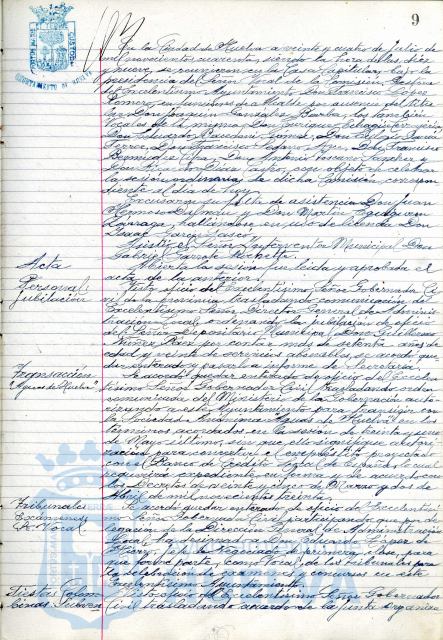 9
En la Ciudad de Huelva a veinte y cuatro de Julio de
mil novecientos cuarenta, siendo la hora de las diez
y nueve, se reunieron en la Casa Capitular, bajo la
presidencia del Señor Vocal de la Comisión Gestora
del Excelentísimo Ayuntamiento, Don Francisco López
Romero, en funciones de Alcalde por ausencia del titu-
lar Don Joaquín González Barba, los también
Vocales de la misma Don Enrique
Don Eduardo Gómez, Don
Don Francisco Don Francisco
Don Antonio Sánchez y
con objeto de celebrar
la sesión ordinaria de dicha Comisión correspon-
diente al día de hoy.
Excusaron su falta de asistencia Don Juan
Hermoso y Don Martín
hallándose en uso de licencia Don
García
Asistió el Señor Interventor Municipal Don
Gabriel Garrote
Acta
Abierta la sesión fue leída y aprobada el
acta de la anterior.
Personal:
Jubilación
Visto oficio del Excelentísimo Señor Gobernador Ci-
vil de la provincia trasladando comunicación del
Excelentísimo Señor Director General de Adminis-
tración Local, ordenando la jubilación de oficio
del Señor Depositario Municipal, Don
Núñez por contar más de setenta años de
edad y veinte de servicios abonables, se acordó que-
dar enterado y pasarlo a informe de Secretaría.
Transacción
"Aguas de Huelva"
Se acordó quedar enterado de oficio del Excelen-
tísimo Señor Gobernador Civil, trasladando orden
comunicada del Ministerio de la Gobernación auto-
rizando a este Ayuntamiento para transigir con
la Sociedad Anónima Aguas de Huelva en los
términos acordados en la sesión de treinta y uno
de Mayo último, sin que ello signifique autori-
zación para concertar el empréstito proyectado
con el Banco de Crédito Local de España, lo cual
requiere expediente en forma de acuerdo con
los Decretos de veinte y cinco de Marzo y dos de
Abril de mil novecientos treinta.
Tribunales
Exámenes
Vocal
Se acordó quedar enterado de oficio del Excelentísi-
mo Señor Gobernador Civil, participando que por de-
legación de la Dirección General de Administración
Local, ha designado a Don Eduardo López de
Jefe de Negociado de primera clase, para
que forme parte, como Vocal, de los tribunales para
la celebración de exámenes y concursos en este
Excelentísimo Ayuntamiento.
Fiestas Colom-
binas
Visto oficio del Excelentísimo Señor Gobernador
Civil trasladando acuerdo de la Junta organiza-